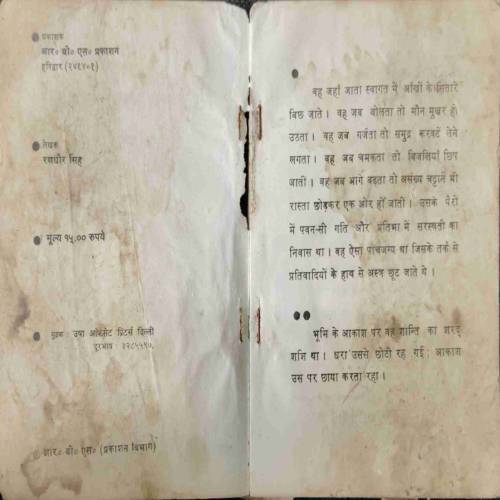 प्रकाशक
आर० बी० एस० प्रकाशन
हरिद्वार (२४९४०१)
लेखक
रणधीर सिंह
मूल्य १५.०० रुपये
मुद्रक : उषा ऑफसेट प्रिंटर्स दिल्ली
दूरभाष : ३२८५५९७,
आर० बी० एस० (प्रकाशन विभाग)
वह जहाँ जाता स्वागत में आँखों के सितारे
बिछ जाते । वह जब बोलता तो मौन मुखर हो
उठता । वह जब गर्जता तो समुद्र करवटें लेने
लगता । वह जब चमकता तो बिजलियाँ छिप
जातीं । वह जब आगे बढ़ता तो असंख्य चट्टानें भी
रास्ता छोड़कर एक ओर हो जातीं । उसके पैरों
में पवन-सी गति और प्रतिभा में सरस्वती का
निवास था । वह ऐसा पांचजन्य था जिसके तर्क से
प्रतिवादियों के हाथ से अस्त्र छूट जाते थे ।
भूमि के आकाश पर वह शान्ति का शरद्
शशि था । धरा उससे छोटी रह गई ; आकाश
उस पर छाया करता रहा ।